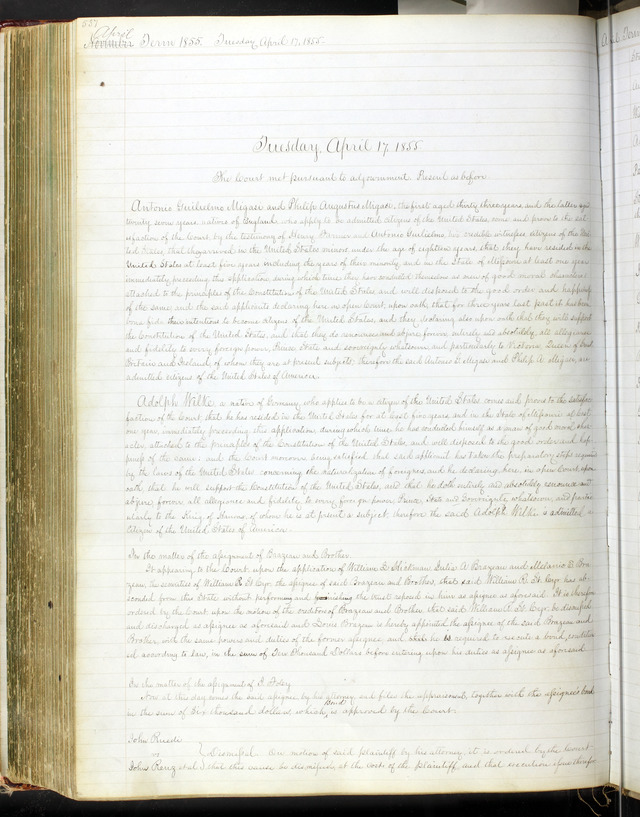 557
April
November Term 1855. Tuesday April 17, 1855.
Tuesday, April 17, 1855
The Court met pursuant to adjournment. Present as before
Antonio Guilielmo Migasi and Philip Augustus Migasi, the first aged thirty three years, and the latter aged
twenty seven years, natives of England who apply to be admitted citizens of the United States, come and prove to the sat
isfaction of the Court, by the testimony of Henry and Antonio Guilielmo two credible witnesses citizens of the Uni
ted States, that they arrived in the United States minors under the age of eighteen years, that they have resided in the
United States at least five years including the years of their minority, and in the State of Missouri at least one year
immediately preceding this application, during which time they have conducted themselves as men of good moral character
attached to the principles of the Constitution of the United States and well disposed to the good order and happiness
of the same; and the said applicants declaring here in open Court, upon oath, that for three years last past it has been
bona fide their intentions to become citizens of the United States, and they declaring also upon oath that they will support
the Constitution of the United States, and that they do renounce and abjure forever, entirely and absolutely, all allegiance
and fidelity to every foreign power, Prince, State and sovereignty whatsoever, and particularly to Victoria, Queen of Great
Britain and Ireland, of whom they are at present subjects; therefore the said Antonio G. Migasi and Philip A. Migasi, are
admitted citizens of the United States of America.
Adolph Wilke a native of Germany, who applies to be a citizen of the United States, comes and proves to the satisfac
faction of the Court, that he has resided in the United States for at least five years, and in the State of Missouri at least
one year, immediately preceding this application, during which time he has conducted himself as a man of good moral char
acter, attached to the principles of the Constitution of the United States, and well disposed to the good order and hap
piness of the same; and the Court moreover being satisfied that said applicant has taken the preparatory steps required
by the laws of the United States concerning the naturalization of foreigners, and he declaring here, in open Court, upon
oath, that he will support the Constitution of the United States, and that he doth entirely and absolutely renounce and
abjure, forever, all allegiance and fidelity to every foreign power, Prince, State and Sovereignty whatsoever, and partic
ularly to the King of of whom he is at present a subject; therefore the said Adolph Wilke is admitted a
Citizen of the United States of America.
In the matter of the assignment of Brazeau and Brother.
It appearing to the Court, upon the application of William G. Shickman, Julia A. Brazeau and Melanie E. Bra
zeau, the securities of William R. St. Cyr, the assignee of said Brazeau and Brothers, that said William R. St. Cyr, has ab
sconded from this State without performing and the trust reposed in him as assignee as aforesaid. It is therefore
ordered by the Court upon the motion of the creditors of Brazeau and Brother, that said William R. St. Cyr, be dismissed
and discharged as assignee as aforesaid and Louis Brazeau is hereby appointed the assignee of the said Brazeau and
Brother, with the same powers and duties of the former assignee, and that he is required to execute a bond, condition
ed according to law, in the sum of Two Thousand Dollars before entering upon his duties as assignee as aforesaid.
In the matter of the assignment of C. Foley
Now at this day comes the said assignee, by his attorney, and files the appraisement, together with the assignee's bond
in the sum of Six thousand dollars, which bond is approved by the Court.
John Ruede
vs
Dismissed. On motion of said plaintiff by his attorney, it is ordered by the Court
John Renz et al. that this cause be dismissed, at the costs of the plaintiff, and that execution issue therefor